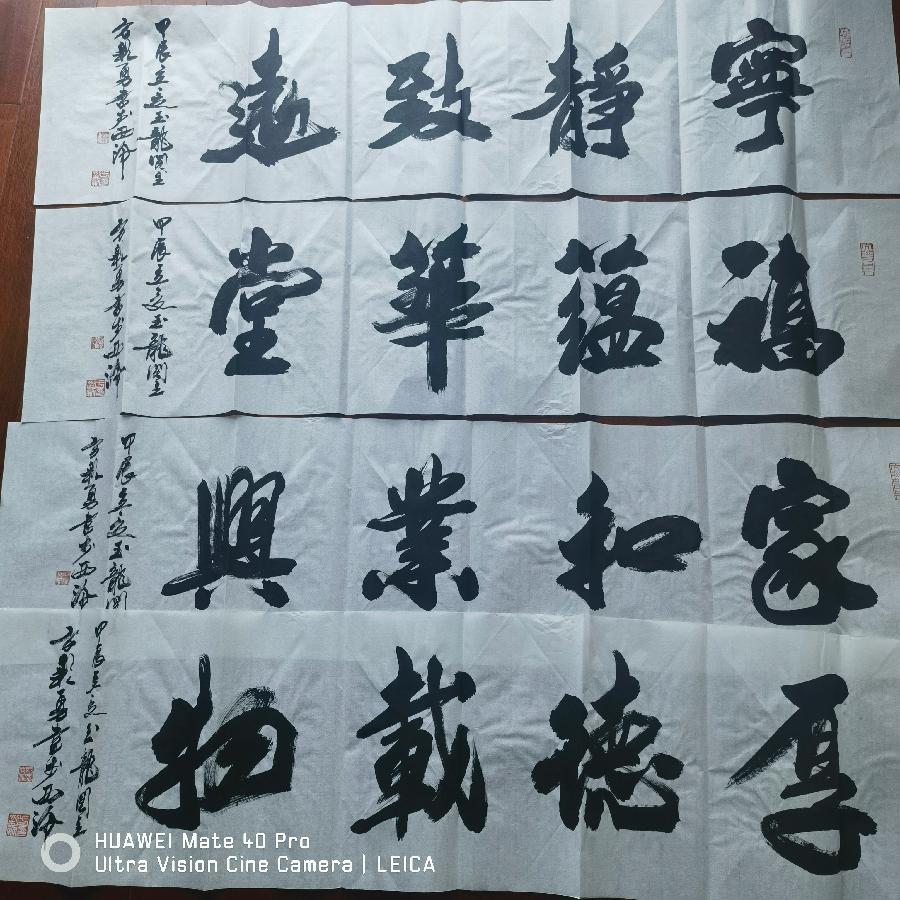 寧靜致遠
甲辰立夏玉龍閣主
方彩勇書於西海
福蘊華堂
甲辰立夏玉龍閣主
方彩勇書於西海
家和業興
甲辰立夏玉龍閣
方彩勇書於西海
厚德載物
甲辰立夏玉龍閣主
方彩勇書於西海
HUAWEI Mate 40 Pro
Ultra Vision Cine Camera | LEICA